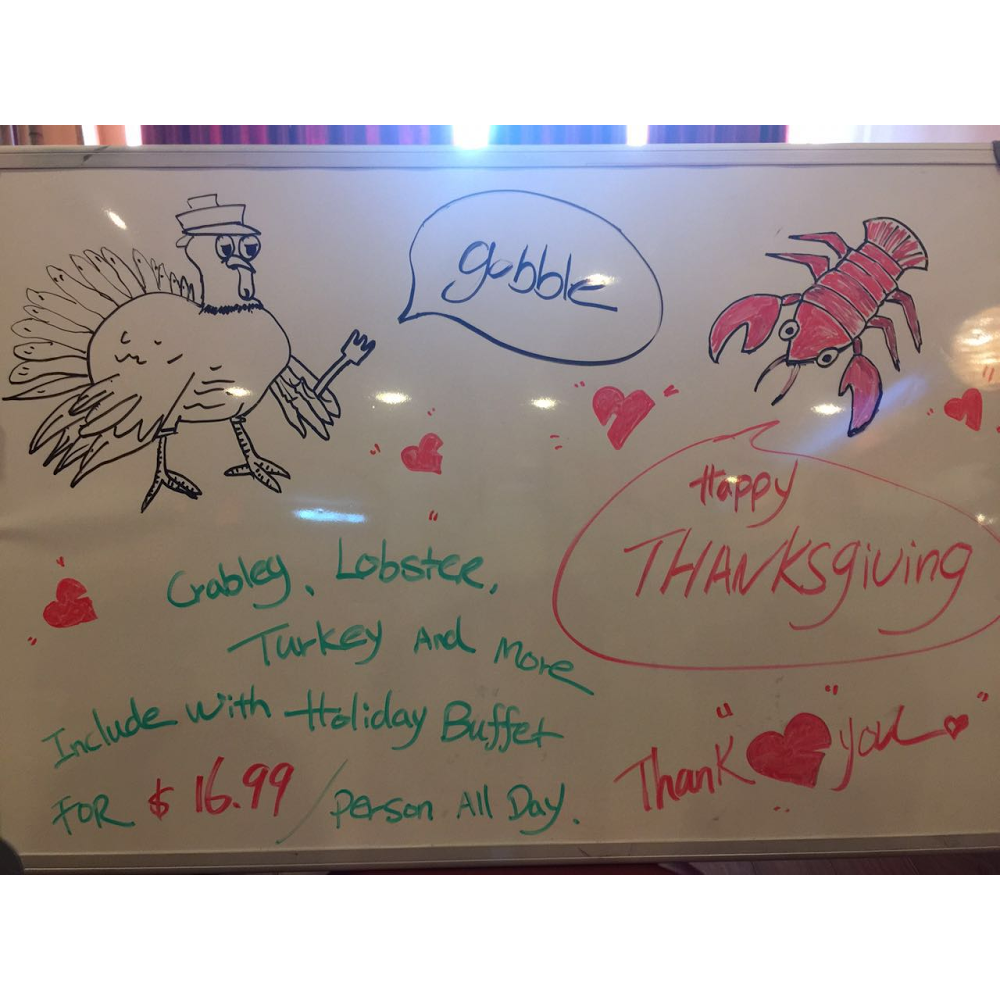 gobble
Happy
THANKSgiving
Crableg, Lobster,
Turkey And More
Include with Holiday Buffet
FOR $ 16.99 / person All Day.
Thank you